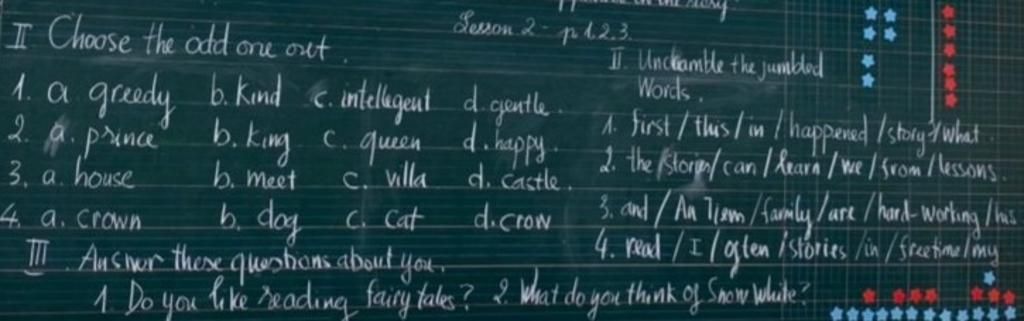 in the story
Lesson 2 - p 1.2.3.
II Choose the odd one out.
1. a greedy b. kind c. intellegent d. gentle.
2. a. prince b. king c. queen d. happy.
3. a. house b. meet c. villa d. castle.
4. a. crown b. dog c. cat d. crow
II. Unclamble the jumbled
Words.
1. first / this / in / happened / story / what.
2. the / story / can / learn / we / from / lessons.
3. and / An Tiem / family / are / hard-working / his
4. read / I / often / stories / in / freetime / my
III. Answer these questions about you.
1. Do you like reading fairy tales? 2. What do you think of Snow White?